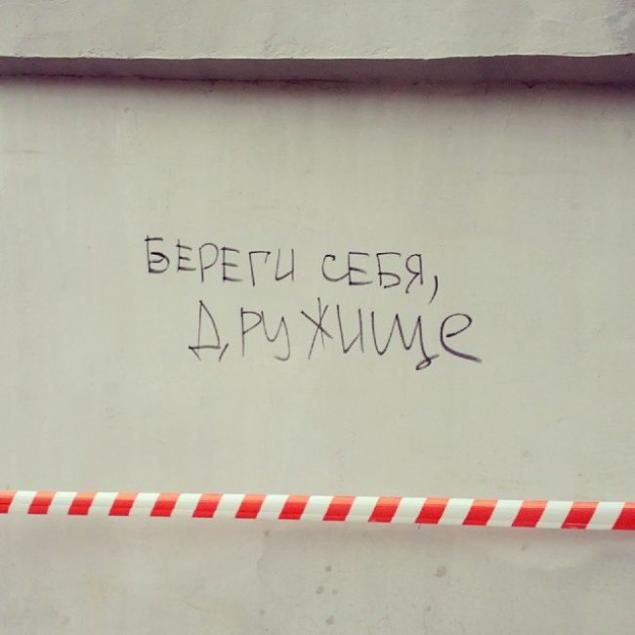 БЕРЕГИ СЕБЯ,
ДРУЖИЩе